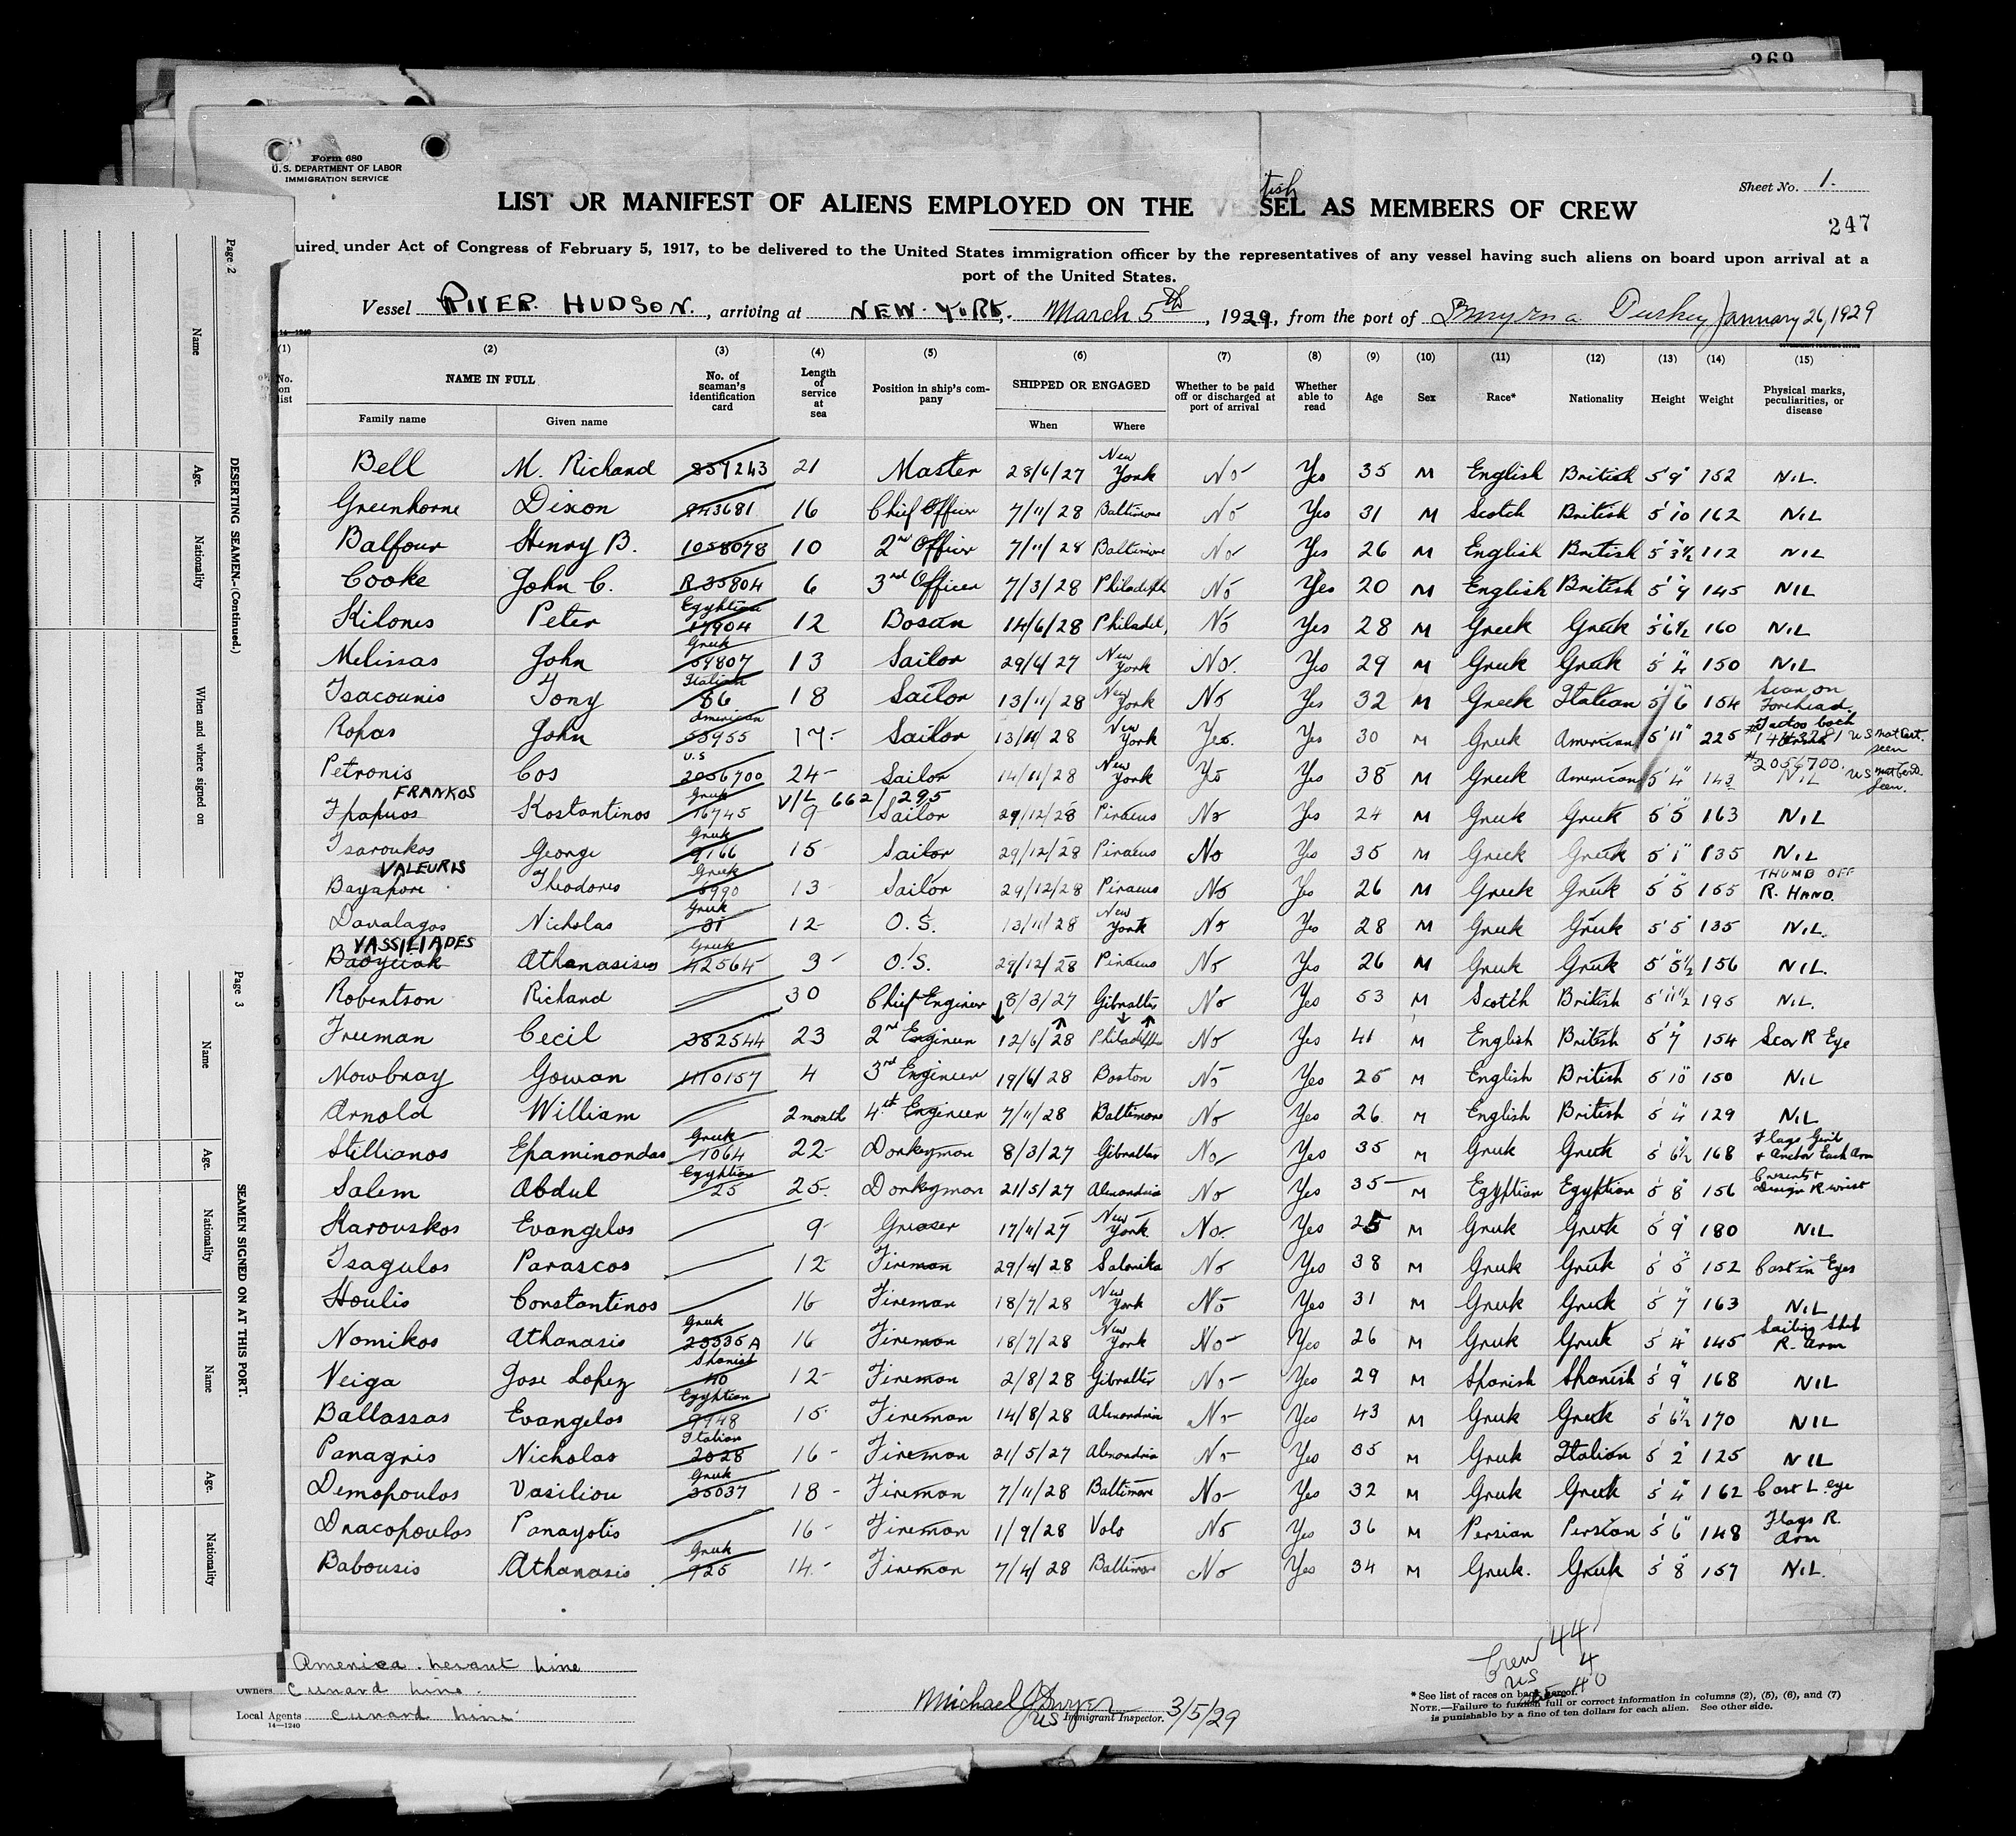 269
Form 680
U. S. DEPARTMENT OF LABOR
IMMIGRATION SERVICE
Sheet No. 1.
tish
LIST OR MANIFEST OF ALIENS EMPLOYED ON THE VESSEL AS MEMBERS OF CREW
247
uired under Act of Congress of February 5, 1917, to be delivered to the United States immigration officer by the representatives of any vessel having such aliens on board upon arrival at a
port of the United States.
Vessel RIVER HUDSON., arriving at NEW YORK, March 5th, 1929, from the port of Smyrna Turkey January 26, 1929
14—1240
(1) (2) (3) (4) (5) (6) (7) (8) (9) (10) (11) (12) (13) (14) (15)
No. on list
NAME IN FULL
Family name Given name
No. of seaman's identification card
Length of service at sea
Position in ship's company
SHIPPED OR ENGAGED
When Where
Whether to be paid off or discharged at port of arrival
Whether able to read
Age Sex Race* Nationality Height Weight
Physical marks, peculiarities, or disease
Bell M. Richard 859243 21 Master 28/6/27 New York No Yes 35 M English British 5'9" 152 NIL.
Greenhorne Dixon 843681 16 Chief Officer 7/11/28 Baltimore No Yes 31 M Scotch British 5'10 162 NIL
Balfour Henry B. 1058078 10 2nd Officer 7/11/28 Baltimore No Yes 26 M English British 5'3½ 112 NIL
Cooke John C. R 35804 6 3rd Officer 7/3/28 Philadelph No Yes 20 M English British 5'9 145 NIL
Kilonis Peter Egyptian 17904 12 Bosun 14/6/28 Philadel, No Yes 28 M Greek Greek 5'6½ 160 NIL
Melissas John Greek 59807 13 Sailor 29/6/27 New York No. Yes 29 M Greek Greek 5'4" 150 NIL
Tsacounis Tony Italian 86 18 Sailor 13/11/28 New York No Yes 32 M Greek Italian 5'6" 154 Scar on Forehead
Ropas John American 55955 17- Sailor 13/11/28 New York Yes. Yes 30 M Greek American 5'11" 225 Tatoo both arms #1443281 U S Nat Cert. seen
Petronis Cos U.S 2056700 24- Sailor 14/11/28 New York Yes Yes 38 M Greek American 5'4" 143 #2056700. NIL U S Nat Cert. Seen.
FRANKOS V/L 662/295
Kostantinos Greek 16745 9 Sailor 29/12/28 Piraeus No Yes 24 M Greek Greek 5'5" 163 NIL
Tsaroukos George Greek 9166 15- Sailor 29/12/28 Piraeus No Yes 35 M Greek Greek 5'1" 135 NIL
VALEURIS
Bayapore Theodoros Greek 6990 13- Sailor 29/12/28 Piraeus No Yes 26 M Greek Greek 5'5" 155 THUMB OFF R. HAND.
Davalagos Nicholas Greek 81 12- O.S. 13/11/28 New York No Yes 28 M Greek Greek 5'5" 135 NIL.
VASSILIADES
Athanasisos Greek 42564 3- O.S. 29/12/28 Piraeus No Yes 26 M Greek Greek 5'5½ 156 NIL.
Robertson Richard 30 Chief Enginer 8/3/27 Gibralter No Yes 53 M Scotch British 5'11½ 195 NIL.
Freeman Cecil 382544 23 2nd Engineer 12/6/28 Philadelphia No Yes 41 M English British 5'7 154 Scar R Eye
Mowbray Gowan 1110157 4 3rd Engineer 19/6/28 Boston No Yes 25 M English British 5'10" 150 NIL
Arnold William 2 month 4th Engineer 7/11/28 Baltimore No Yes 26 M English British 5'4 129 NIL
Stillianos Epaminondas Greek 1064 22- Donkeyman 8/3/27 Gibralter No Yes 35 M Greek Greek 5'6½ 168 Flags Girl + Anchor Each Arm
Salem Abdul Egyptian 25 25. Donkeyman 21/5/27 Alexandria No Yes 35- M Egyptian Egyptian 5'8" 156 Cresent + Design R wrist
Karouskos Evangelos 9- Greaser 17/4/27 New York No. Yes 25 M Greek Greek 5'9" 180 NIL
Tsagulos Parascos 12 Fireman 29/4/28 Salonika No Yes 38 M Greek Greek 5'5" 152 Cast in Eyes
Houlis Constantinos 16 Fireman 18/7/28 New York No Yes 31 M Greek Greek 5'7" 163 NIL
Nomikos Athanasis Greek 25535A 16 Fireman 18/7/28 New York No- Yes 26 M Greek Greek 5'4" 145 Sailing Ship R. arm
Veiga Jose Lopez Spanish 110 12- Fireman 2/8/28 Gibralter No- Yes 29 M Spanish Spanish 5'9" 168 NIL
Ballassas Evangelos Egyptian 9948 15- Fireman 14/8/28 Alexandria No- Yes 43 M Greek Greek 5'6½ 170 NIL
Panagris Nicholas Italian 2028 16- Fireman 21/5/27 Alexandria No- Yes 35 M Greek Italian 5'2" 125 NIL
Demopoulos Vasiliou Greek 35037 18- Fireman 7/11/28 Baltimore No- Yes 32 M Greek Greek 5'4" 162 Cast L. eye
Dracopoulos Panayotis 16- Fireman 1/9/28 Volo No Yes 36 M Persian Persian 5'6" 148 Flags R. arm
Babousis Athanasis Greek 925 14- Fireman 7/4/28 Baltimore No Yes 34 M Greek. Greek 5'8" 157 NIL.
Crew 44
US 4
40
America Levant Line
Owners Cunard Line.
Local Agents Cunard Line
14—1240
Michael J Dwyer US Immigrant Inspector. 3/5/29
* See list of races on back hereof.
NOTE.—Failure to furnish full or correct information in columns (2), (5), (6), and (7)
is punishable by a fine of ten dollars for each alien. See other side.
Page 2
DESERTING SEAMEN—(Continued.)
Name Age. Nationality When and where signed on
Page 3
SEAMEN SIGNED ON AT THIS PORT.
Name Age. Nationality Name Age. Nationality